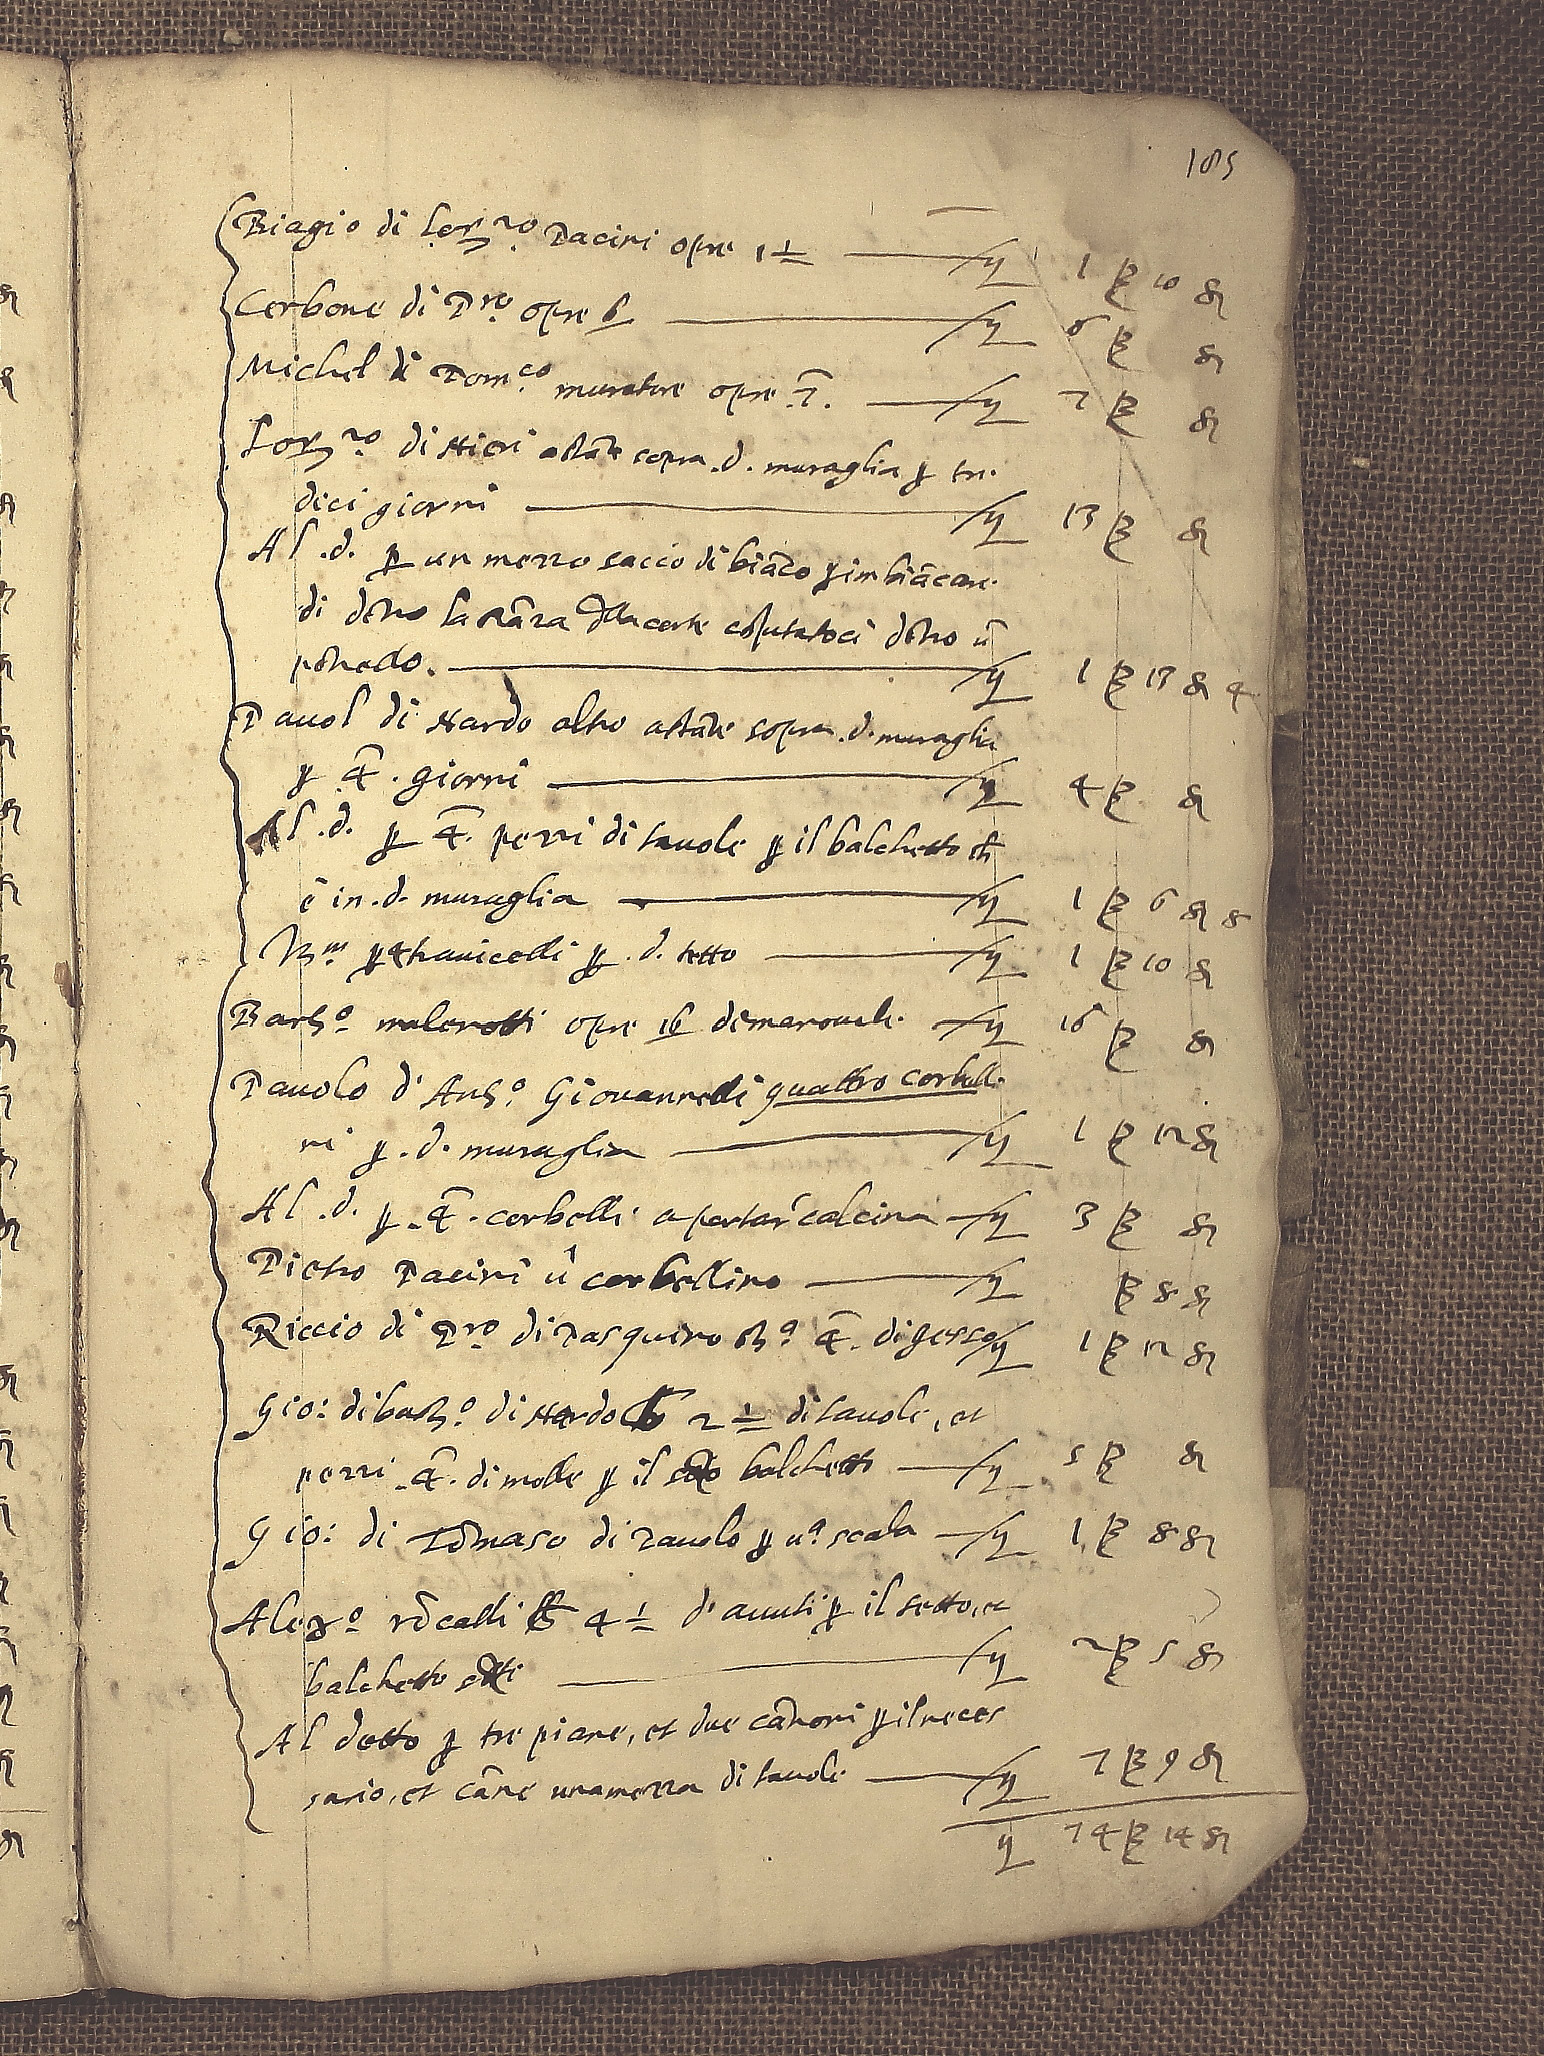 185
Biagio di Lorzo. Pacini opre 1 1/2 — L 1 ß 10 d
Cerbone di Pro. opre 6 — L 6 ß d
Michel di Domco. muratore opre 7. — L 7 ß d
Lorzo. di Nieri astāte sopra .d. muraglia p tre
dici giorni — L 13 ß d
Al .d. p un mezzo sacco di biāco p imbiācare
di dētro la stāza della corte cōputatoci dētro ū
— L 1 ß 13 d 4
Pauol di Nardo altro astāte sopra .d. muraglia
p 4. giorni — L 4 ß d
Al .d. p 4. pezzi di tauole p il balchetto ch
ē in .d. muraglia — L 1 ß 6 d 8
p 4 trauicelli p .d. tetto — L 1 ß 10 d
Barto. malerotti opre 16 di manouale — L 16 ß d
Pauolo d' Anto. Giouannelli quattro corbelli
ni p .d. muraglia — L 1 ß 12 d
Al .d. p .4. corbelli a portar calcina — L 3 ß d
Pietro Pacini ū corbellino — L ß 8 d
Riccio di Pro. di Pasquino sta. 4. di gesso L 1 ß 12 d
Gio: di barto. di Nardo 2 1/2 di tauole, et
pezzi .4. di molle p il balchetto — L 5 ß d
Gio: di Tōmaso di Pauolo p ua. scala — L 1 ß 8 d
Aleso. rōcalli lb 4 1/2 d' aunti p il tetto, et
balchetto — L 2 ß 5 d
Al detto p tre piane, et due cānoni p il neces
sario, et cāne una mezza di tauole — L 7 ß 9 d
L 74 ß 14 d